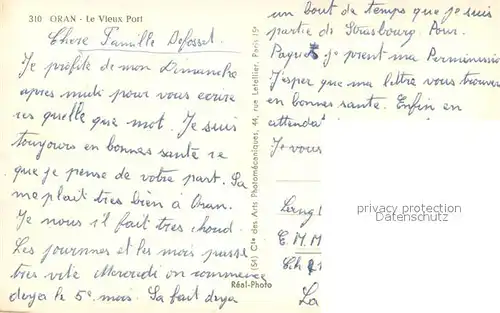 310 ORAN - Le Vieux Port
Chere Famille Defosset.
Je profite de mon Dimanche
apres midi pour vous ecrire
ces quelle que mot. Je suis
toujours en bonnes sante ce
que je pense de votre part. Sa
me plait tres bien à Oran.
Je nous il fait tres chaud.
Les journnes et les mois passe
tres vite Mercredi on commence
deyer le 5e mois. Sa fait deya
Réal-Photo
(54) Cie des Arts Photomécaniques, 44, rue Letellier, Paris 15e
un bout de temps que je suis
partie de Strasbourg. Pour
je prent ma Permission
J'esper que ma lettre vous trouver
en bonnes sante. Enfin en
attendat
Je vous
privacy protection
Datenschutz